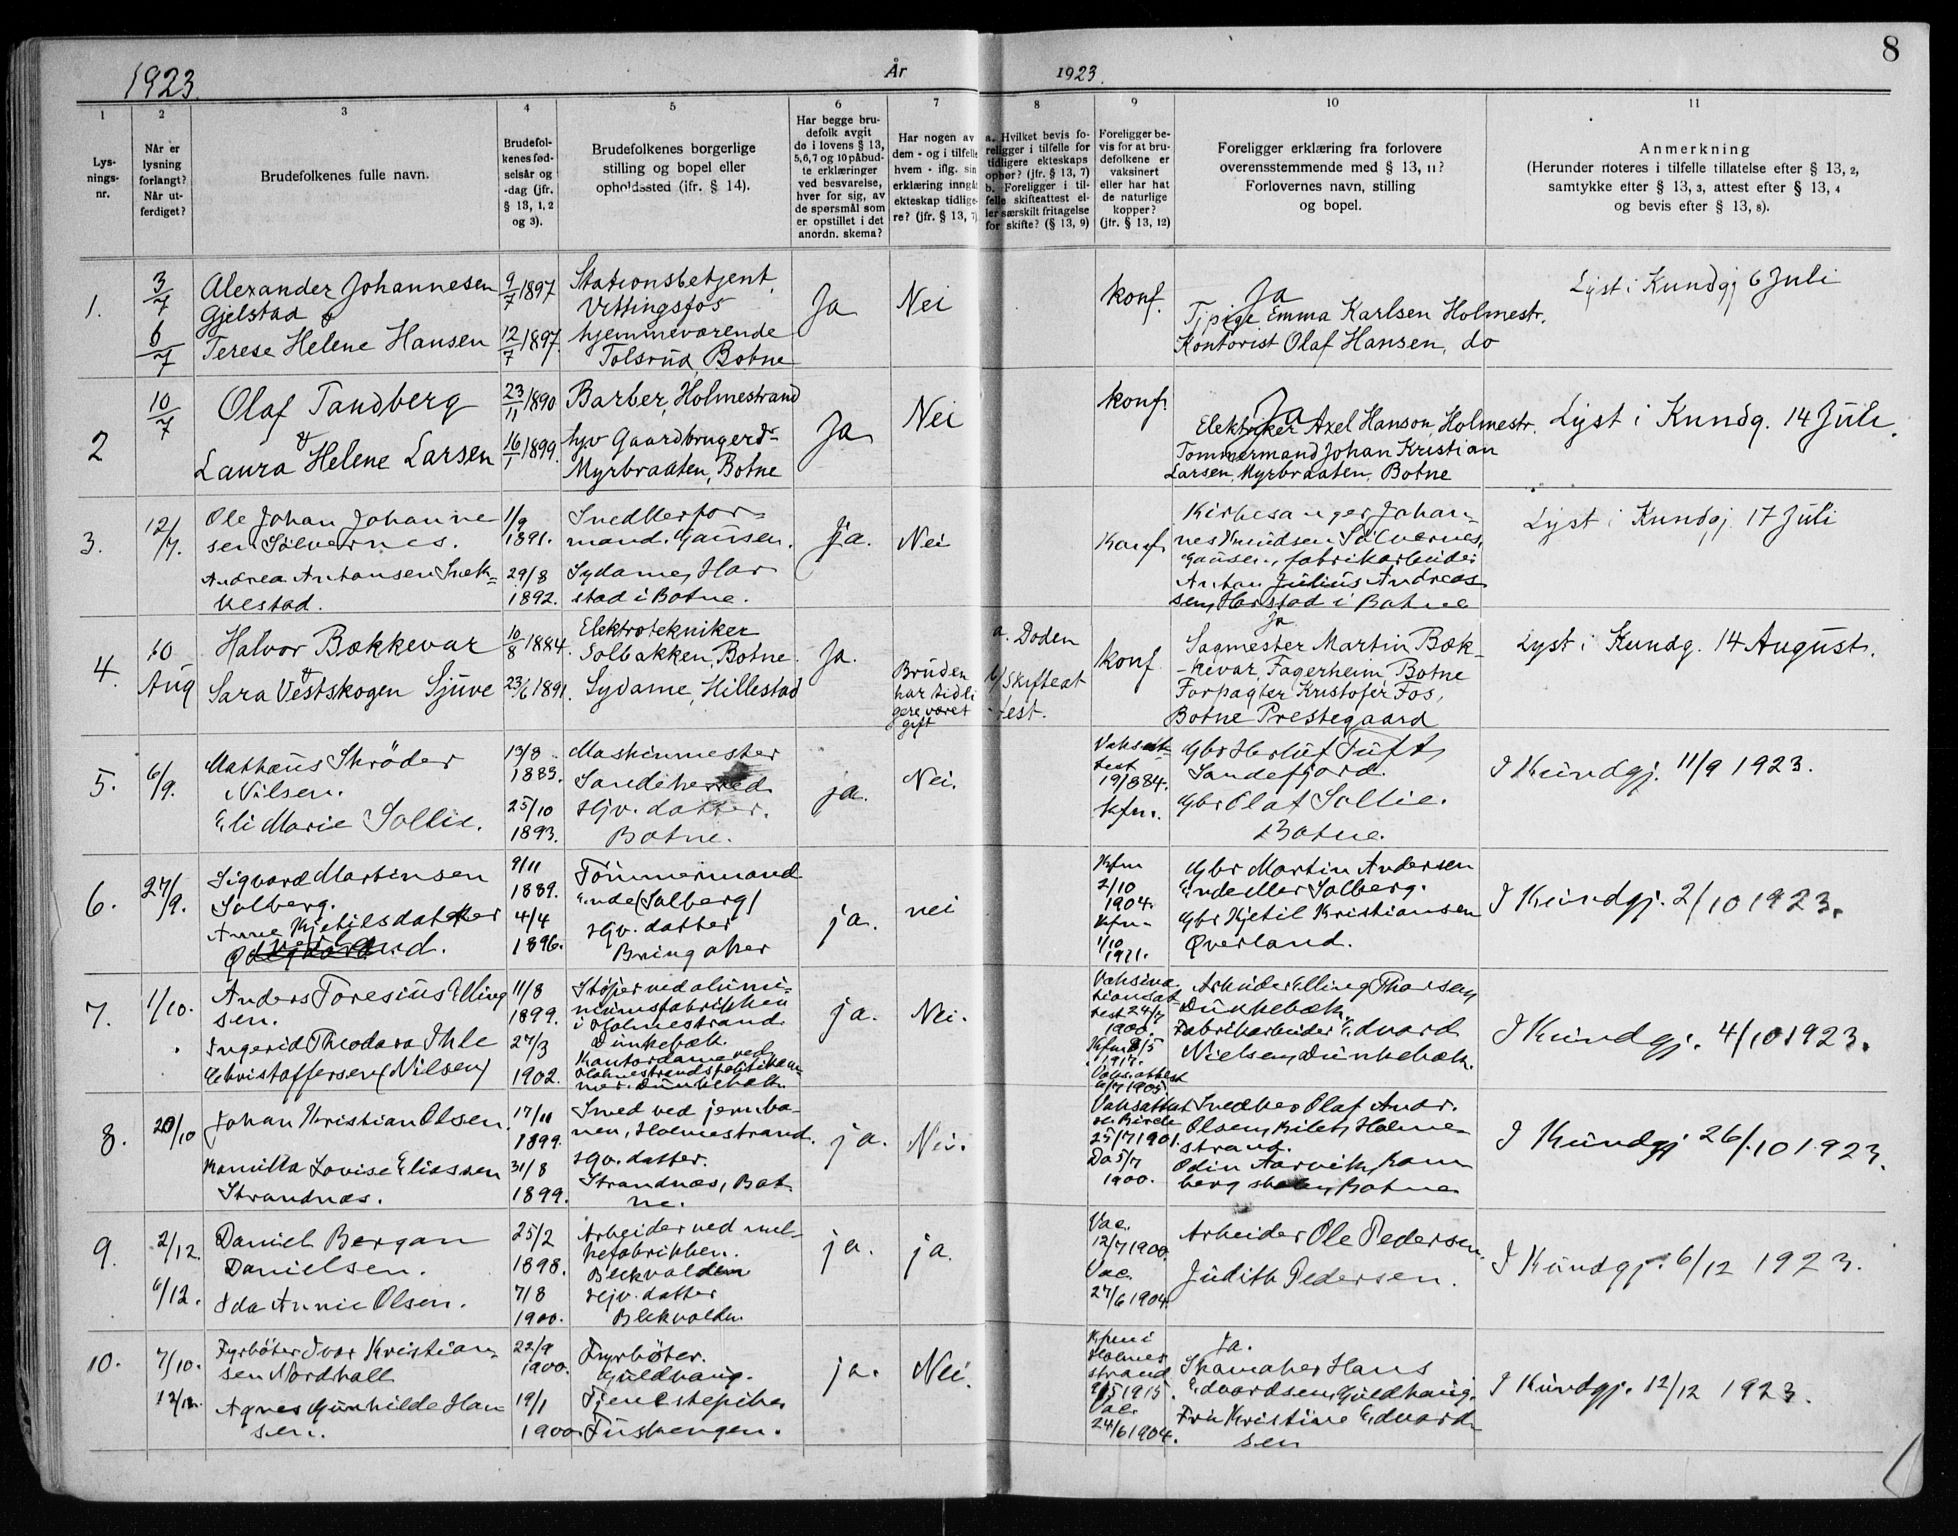 8
1923.
År
1923.
1
2
3
4
5
6
7
8
9
10
11
Lys-
nings-
nr.
Når er
lysning
forlangt?
Når ut-
ferdiget?
Brudefolkenes fulle navn.
Brudefol-
kenes fød-
selsår og
-dag (jfr.
§ 13, 1, 2
og 3).
Brudefolkenes borgerlige
stilling og bopel eller
opholdssted (jfr. § 14).
Har begge bru-
defolk avgit
de i lovens § 13,
5,6,7 og 10 påbud-
te erklæringer
ved besvarelse,
hver for sig, av
de spørsmål som
er opstillet i det
anordn. skema?
Har nogen av
dem - og i tilfelle
hvem - iflg. sin
erklæring inngåt
ekteskap tidlige-
re? (jfr. § 13, 7)
a. Hvilket bevis fo-
religger i tilfelle for
tidligere ekteskaps
ophør? (jfr. § 13, 7)
b. Foreligger i til-
felle skifteattest el-
ler særskilt fritagelse
for skifte? (§ 13, 9)
Foreligger be-
vis for at bru-
defolkene er
vaksinert
eller har hat
de naturlige
kopper?
(jfr. § 13, 12)
Foreligger erklæring fra forlovere
overensstemmende med § 13, 11?
Forlovernes navn, stilling
og bopel.
Anmerkning
(Herunder noteres i tilfelle tillatelse efter § 13, 2,
samtykke efter § 13, 3, attest efter § 13, 4
og bevis efter § 13, 8).
1.
3/7
6/7
Alexander Johannesen
Gjelstad &
Terese Helene Hansen
9/7 1897
12/7 1897.
Stationsbetjent,
Vittingsfos
hjemmeværende
Tolsrud, Botne
Ja
Nei
konf.
Ja
Tjpige Emma Karlsen Holmestr.
Kontorist Olaf Hansen, do
Lyst i Kundgj 6 Juli
2
10/7
Olaf Tandberg
&
Laura Helene Larsen
23/11 1890
16/1 1899.
Barber, Holmestrand
hjv Gaardbrugerd-
Myrbraaten, Botne
Ja
Nei
konf.
Ja
Elektriker Axel Hanson, Holmestr.
Tommermand Johan Kristian
Larsen, Myrbraaten, Botne
Lyst i Kundg. 14 Juli.
3.
12/7.
Ole Johan Johanne
sen Sølvernes.
Andrea Antonsen Snek-
kestad.
1/9
1891.
29/8
1892.
Snedkerfor-
mand. Gausen.
Sydame, Har
stad i Botne.
Ja.
Nei
Konf
Kirkesanger Johan-
nes Knudsen Sølvernes,
Gausen, fabrikarbeider
Anton Julius Andreas
sen, Harstad i Botne
Lyst i Kundgj 17 Juli
4.
10
Aug
Halvor Bækkevar
&
Sara Vestskogen Sjuve
10/8 1884.
23/6 1891.
Elektrotekniker
Solbakken, Botne.
Sydame, Hillestad
Ja.
Bruden
har tidli
gere været
gift
a. Doden
b/ skifteat
-test.
konf
Ja
Sagmester Martin Bæk-
-kevar, Fagerheim Botne
Forpagter Kristofer Fos,
Botne Prestegaard
Lyst i Kundg. 14 August.
5.
6/9.
Mathæus Skrøder
Nilsen.
Eli Marie Sollie.
13/8
1883.
25/10
1893.
Maskinmester
Sandeherred
Hjv. datter.
Botne.
ja.
Nei.
Vaksat-
test
19/8 84.
Kfm.
Gbr Herluf Tuft,
Sandefjord.
Gbr Olaf Sollie.
Botne.
I Kundgj. 11/9 1923.
6.
27/9.
Sigvard Martinsen
Solberg.
Anne Kjetilsdatter
Øverland.
9/11
1889.
4/4
1896.
Tømmermand
Ende (Solberg)
Hjv. datter
Bringaker
ja.
nei
Kfm
2/10
1904.
Kfm-
1/10
1911.
Gbr Martin Andersen
Ende eller Solberg.
Gbr Kjetil Kristiansen
Øverland.
I Kundgj. 2/10 1923.
7.
1/10.
Anders Toresius Elling
sen.
Ingerid Theodora Ihle
Christoffersen (Nilsen)
11/8
1899.
27/3
1902.
Støper ved alumi-
niumsfabrikken
i Holmestrand.
Dunkebæk.
Kontordame ved
Holmestrands politikam-
mer. Dunkebæk.
ja.
Nei.
Vaksina
tionsat-
test 24/7
1900.
Kfm 3/5
1917.
Vaks. attest
6/7 1905
Arbeider Elling Thorsen
Dunkebæk.
Fabrikarbeider Edvard
Nielsen, Dunkebæk.
I Kundgj. 4/10 1923.
8.
20/10
Johan Kristian Olsen.
Kamilla Lovise Eliassen
Strandnæs.
17/11
1899.
31/8
1899.
Smed ved jernba-
nen, Holmestrand.
Hjv. datter.
Strandnæs, Bot
ne.
ja.
Nei.
Vaksattest
25/7 1901.
Do 5/7
1900.
Snedker Olaf Andr.
Olsen, Kilen, Holme
strand.
Odin Aarvik, Ram
berg skole, Botne
I Kundgj 26/10 1923.
9.
2/12.
6/12.
Daniel Bergan
Danielsen.
Ida Annie Olsen.
25/2
1898.
7/8
1900.
Arbeider ved mel-
kefabrikken.
Blekvolden
Hjv. datter
Blekvolden
ja.
ja.
Vac.
12/7 1900.
Vac.
27/6 1904.
Arbeider Ole Pedersen.
Judith Pedersen.
I Kundgj. 6/12 1923.
10.
7/10.
12/12.
Fyrbøter Ivar Kristian-
sen Nordhall
Agnes Gunhilde Han
sen.
22/9
1900.
19/1
1900
Fyrbøter.
Guldhaug.
Tjenestepike
Fuskengen.
ja.
Nei.
Kfm i
Holmes
strand
9/5 1915.
Vac.
24/6 1904.
Ja.
Skomaker Hans
Edvardsen, Guldhaug.
Fru Kristine Edvard
sen
I Kundgj. 12/12 1923.